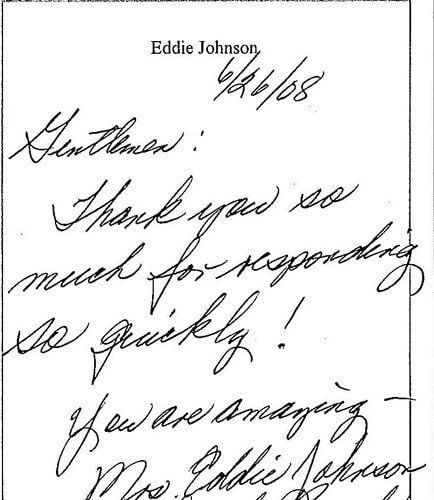 Eddie Johnson
6/26/08
Gentlemen:
Thank you so
much for responding
so quickly!
You are amazing –
Mrs. Eddie Johnson